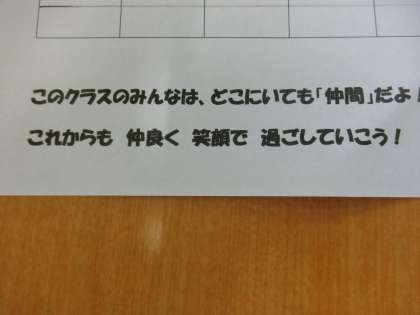 このクラスのみんなは、どこにいても「仲間」だよ！
これからも 仲良く 笑顔で 過ごしていこう！